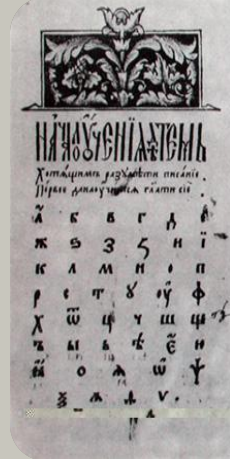 НАЧАЛО УЧЕНІЯ ДѢТЕМЪ
Хотящимъ разумѣти писаніе
Первое да научимся глати сіе
а б в г д є
ж ѕ з ꙁ и ї
к л м н о п
р с т ꙋ оу ф
х ѿ ц ч ш щ
ъ ы ь ѣ є ю
ѫ о ѧ ѡ ѱ
ѯ ѧ ѳ ѵ